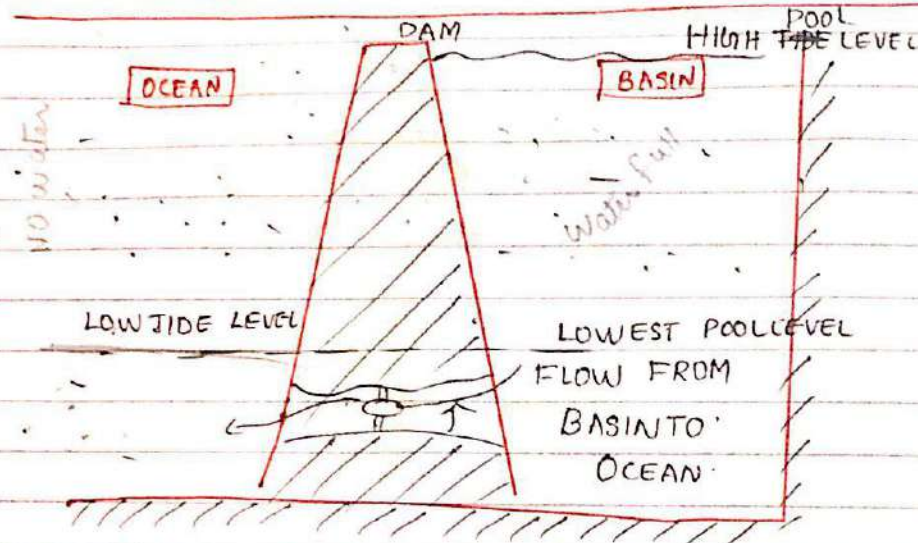 DAM
POOL
HIGH TIDE LEVEL
OCEAN
BASIN
NO water
Water full
LOW TIDE LEVEL
LOWEST POOL LEVEL
FLOW FROM
BASIN TO
OCEAN.